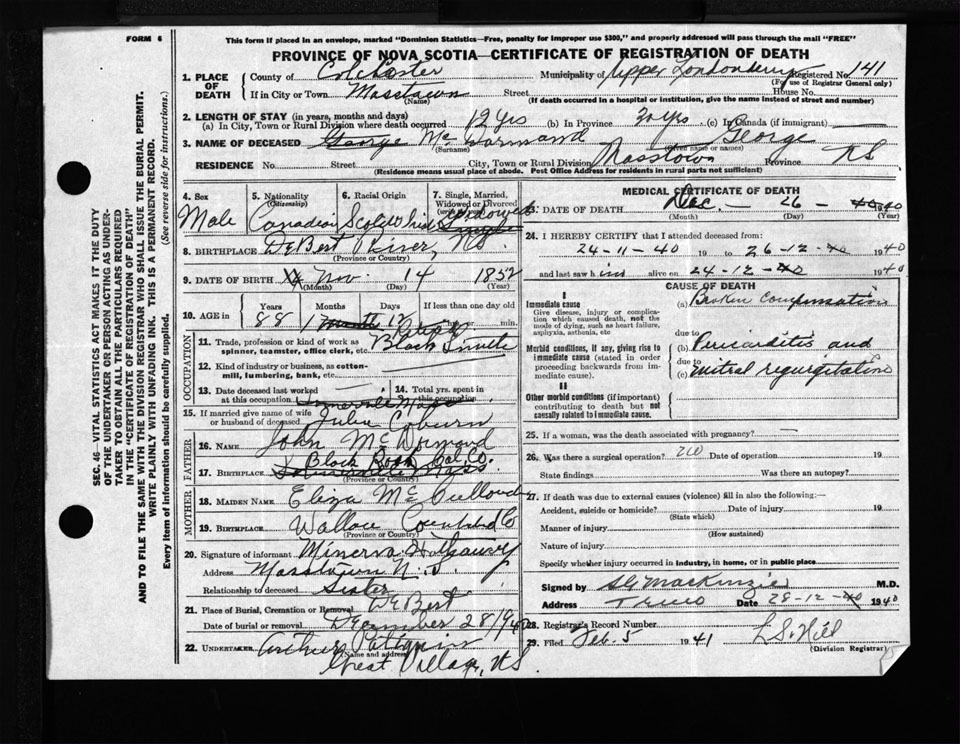 FORM 6
This form if placed in an envelope, marked "Dominion Statistics—Free, penalty for improper use $300," and properly addressed will pass through the mail "FREE"
PROVINCE OF NOVA SCOTIA—CERTIFICATE OF REGISTRATION OF DEATH
SEC. 46—VITAL STATISTICS ACT MAKES IT THE DUTY
OF THE UNDERTAKER OR PERSON ACTING AS UNDER-
TAKER TO OBTAIN ALL THE PARTICULARS REQUIRED
IN THE "CERTIFICATE OF REGISTRATION OF DEATH"
AND TO FILE THE SAME WITH THE DIVISION REGISTRAR WHO SHALL ISSUE THE BURIAL PERMIT.
WRITE PLAINLY WITH UNFADING INK. THIS IS A PERMANENT RECORD.
Every item of information should be carefully supplied. (See reverse side for instructions.)
1. PLACE OF DEATH County of Colchester Municipality of Upper Londonderry Registered No. 141
(For use of Registrar General only)
If in City or Town Masstown Street House No.
(Name) (If death occurred in a hospital or institution, give the name instead of street and number)
2. LENGTH OF STAY (in years, months and days)
(a) In City, Town or Rural Division where death occurred 12 yrs (b) In Province 20 yrs. (c) In Canada (if immigrant)
3. NAME OF DECEASED George McDormand George
(Surname) (Given name or names)
RESIDENCE No. Street City, Town or Rural Division Masstown Province NS
(Residence means usual place of abode. Post Office Address for residents in rural parts not sufficient)
4. Sex Male
5. Nationality (Citizenship) Canadian
6. Racial Origin
7. Single, Married, Widowed or Divorced Widowed
8. BIRTHPLACE DeBert River, NS.
(Province or Country)
9. DATE OF BIRTH Nov 14 1852
(Month) (Day) (Year)
10. AGE in Years Months Days If less than one day old
88 1 month 12 min.
OCCUPATION
11. Trade, profession or kind of work as spinner, teamster, office clerk, etc. Retired Black Smith
12. Kind of industry or business, as cotton-mill, lumbering, bank, etc.
13. Date deceased last worked at this occupation
14. Total yrs. spent in this occupation
Somerville Mass
15. If married give name of wife or husband of deceased Julia Coburn
FATHER
16. NAME John McDormand
17. BIRTHPLACE Black Rock Col Co.
Somerville Mass
(Province or Country)
MOTHER
18. MAIDEN NAME Eliza McCulloud
19. BIRTHPLACE Wallace Cumberland Co
(Province or Country)
20. Signature of informant Minerva
Address Masstown N.S.
Relationship to deceased Sister
21. Place of Burial, Cremation or Removal DeBert
Date of burial or removal December 28/1940
22. UNDERTAKER Arthur Patriquin
(Name and address)
Great Village, NS.
MEDICAL CERTIFICATE OF DEATH
23. DATE OF DEATH Dec. - 26 - 1940
(Month) (Day) (Year)
24. I HEREBY CERTIFY that I attended deceased from:
24-11-40 19 to 26-12-40 1940
and last saw him alive on 24-12-40 1940
CAUSE OF DEATH
I
Immediate cause (a) Broken Compensation
Give disease, injury or complication which caused death, not the mode of dying, such as heart failure, asphyxia, asthenia, etc
due to
Morbid conditions, if any, giving rise to immediate cause (stated in order proceeding backwards from immediate cause). (b) Pericarditis and
due to
(c) mitral regurgitation
II
Other morbid conditions (if important) contributing to death but not causally related to immediate cause.
25. If a woman, was the death associated with pregnancy? —
26. Was there a surgical operation? no Date of operation 19
State findings Was there an autopsy?
27. If death was due to external causes (violence) fill in also the following:—
Accident, suicide or homicide? Date of injury 19
(State which)
Manner of injury
(How sustained)
Nature of injury
Specify whether injury occurred in industry, in home, or in public place
Signed by S G MacKenzie M.D.
Address Truro Date 28-12-40 1940
28. Registrar's Record Number
29. Filed Feb. 5 1941 L S. Hill
(Division Registrar)